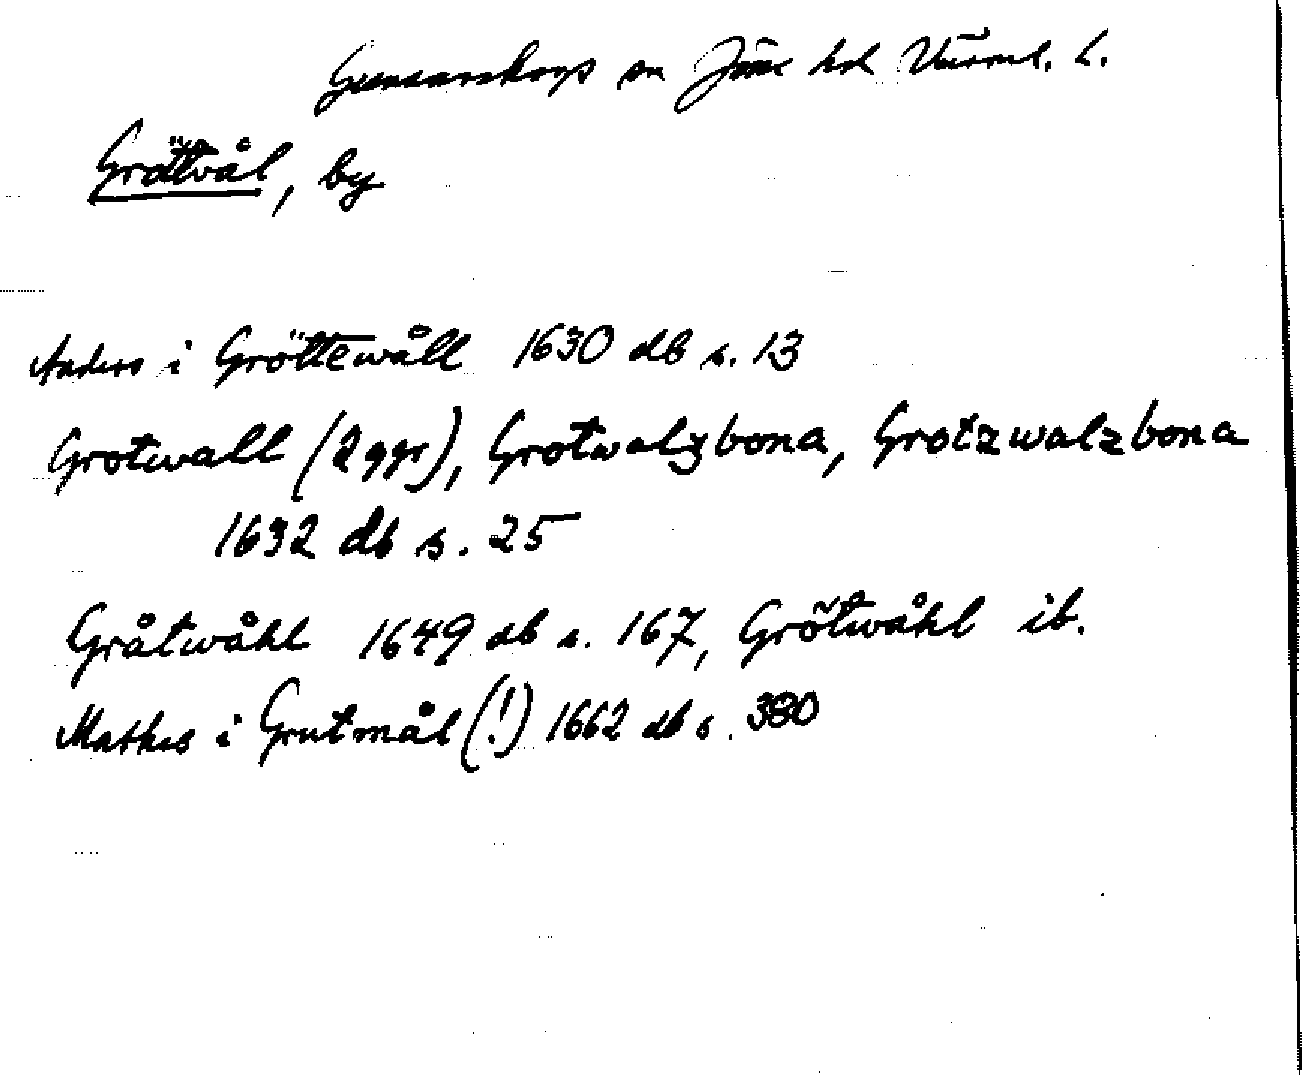 Gunnarskogs sn Jösse hd Värml. l.
Grättvål, by
Anders i Gröttewåll 1630 db s. 13
Grotwall (2 ggr), Grotwalzbona, Grotzwalzbona
1632 db s. 25
Gråtwåhl 1649 db s. 167, Grötwåhl ib.
Mathes i Grutmål (!) 1662 db s. 380